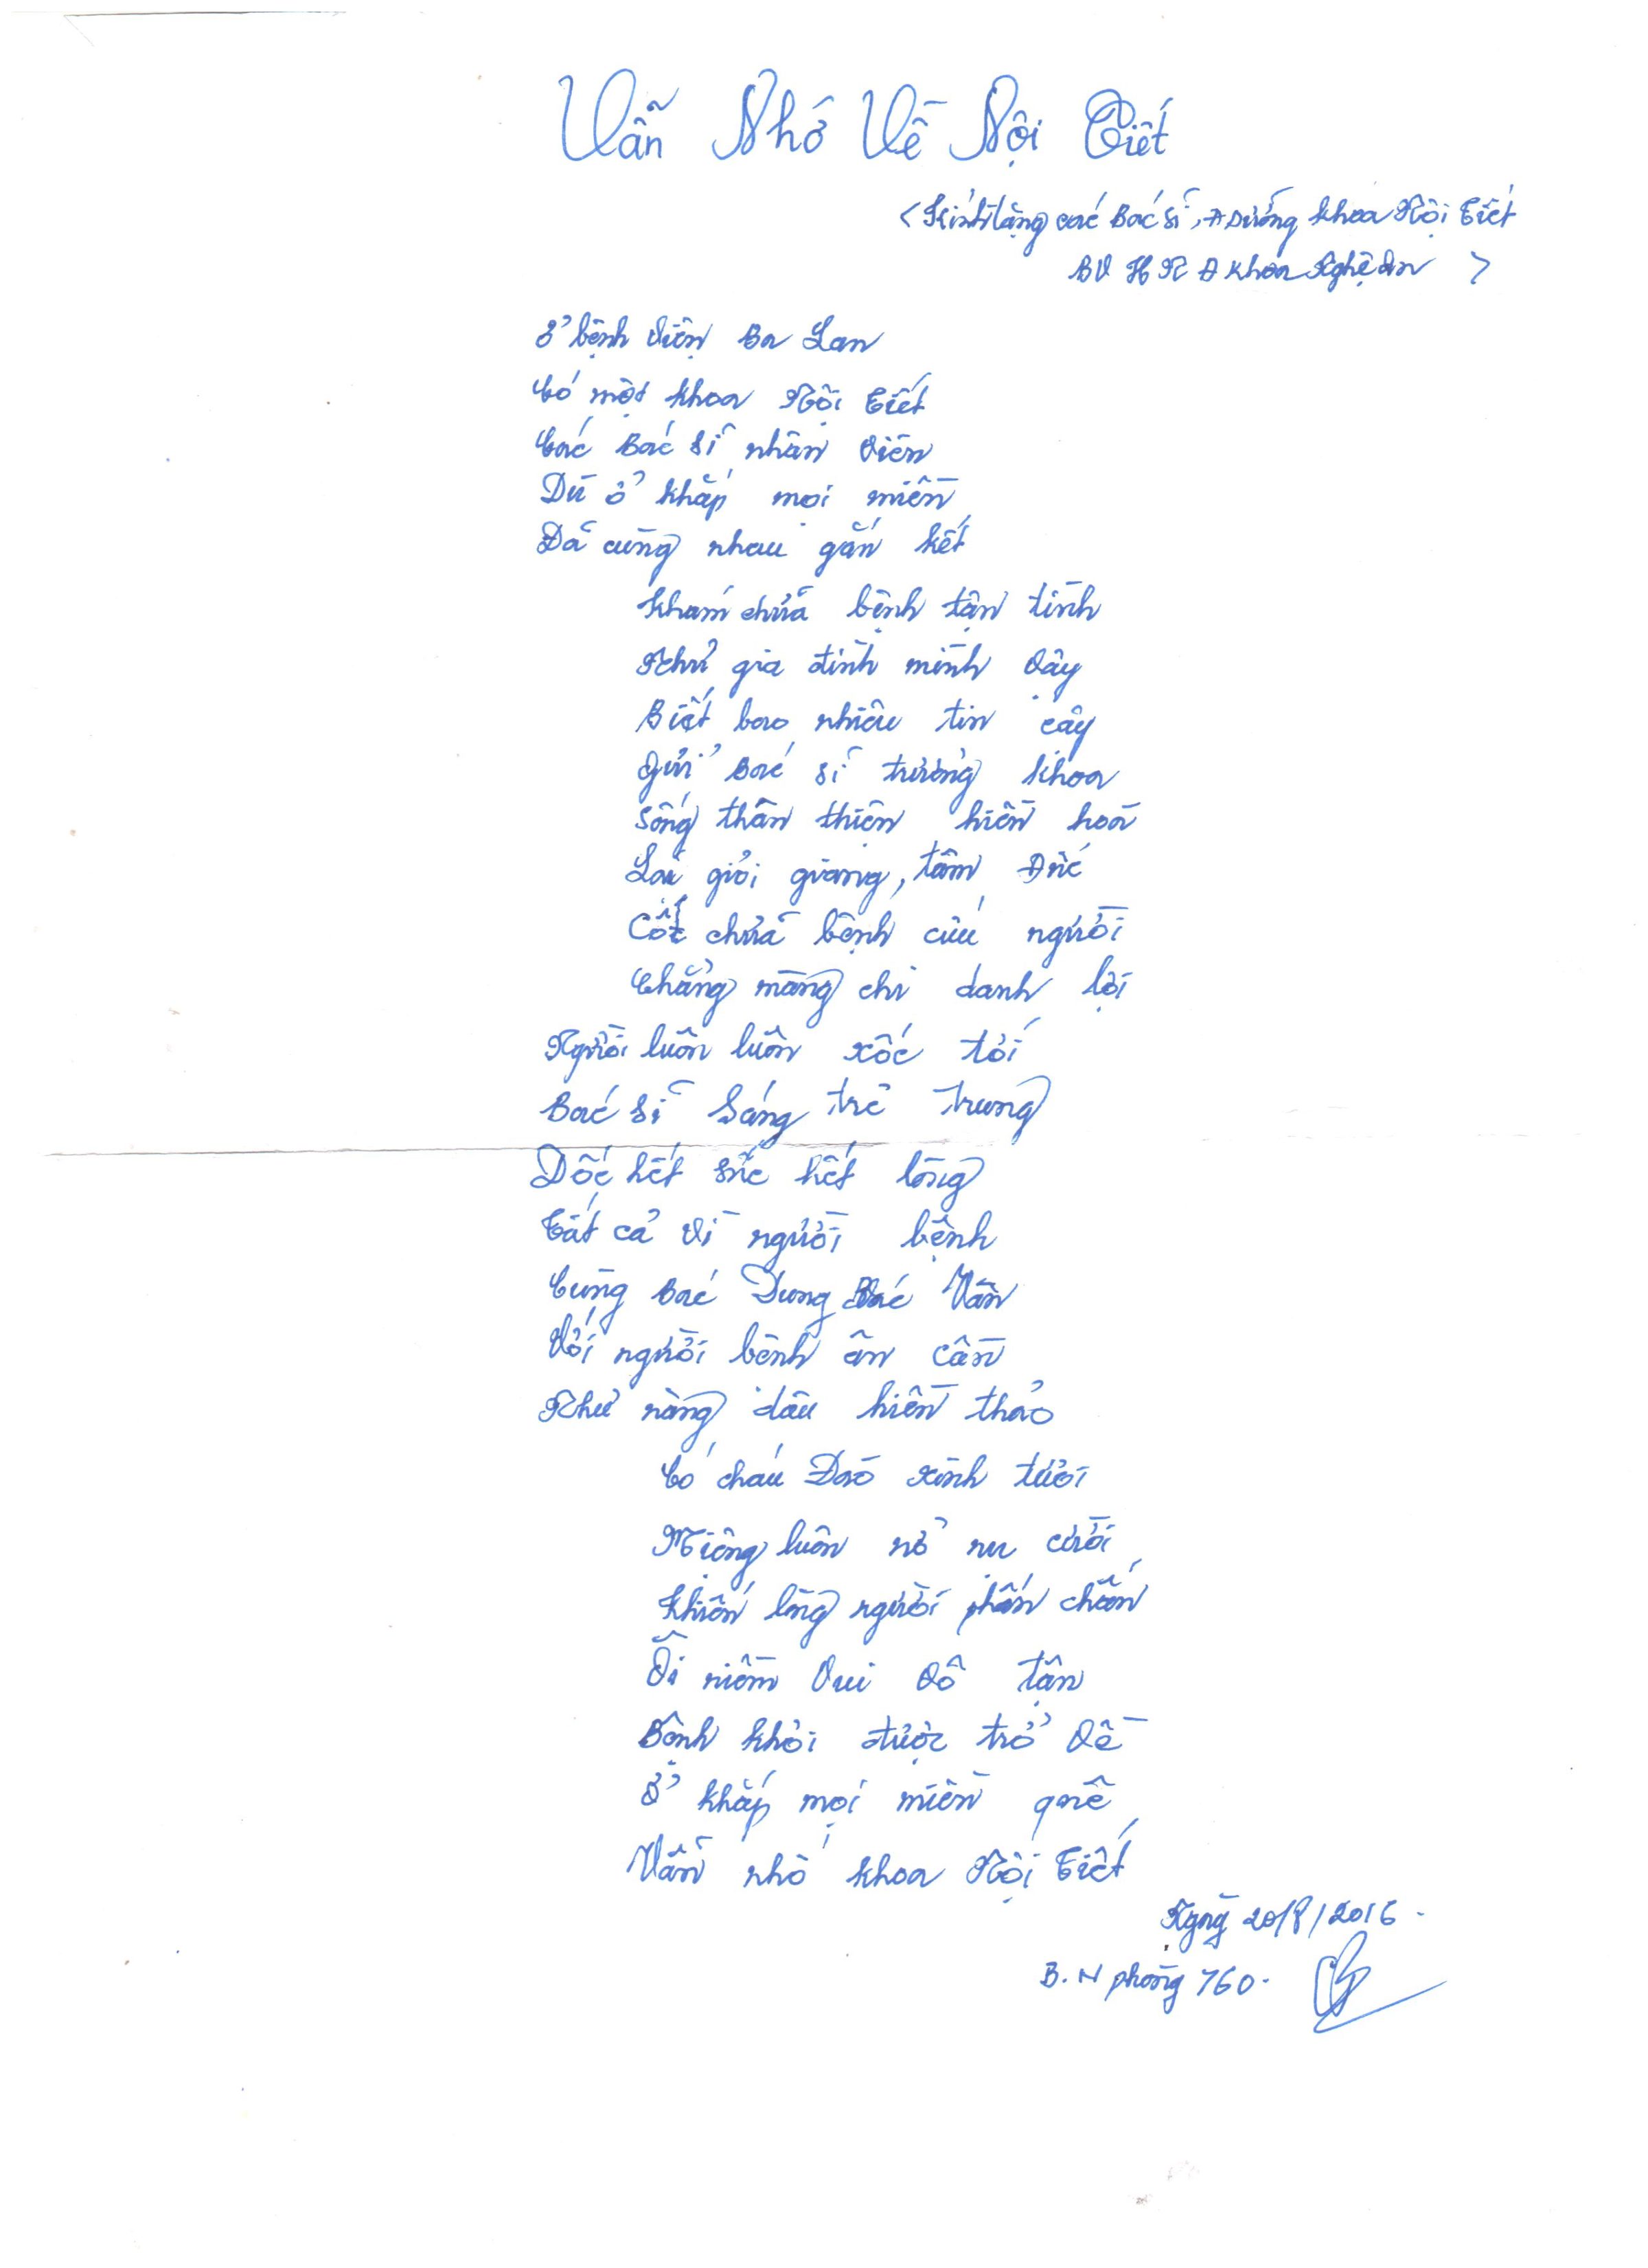 Vẫn Nhớ Về Nội Tiết
<Kính tặng các Bác sĩ, Đ Dưỡng khoa Nội Tiết
BV HN Đ Khoa Nghệ An >
Ở bệnh viện Ba Lan
Có một khoa Nội Tiết
Các Bác sĩ nhân viên
Dù ở khắp mọi miền
Đã cùng nhau gắn kết
Khám chữa bệnh tận tình
Như gia đình mình vậy
Biết bao nhiêu tin cậy
Gửi Bác sĩ trưởng khoa
Sống thân thiện hiền hoà
Lại giỏi giang, tâm Đức
Cốt chữa bệnh cứu người
Chẳng màng chi danh lợi
Người luôn luôn xốc tới
Bác sĩ Sáng trẻ trung
Dốc hết sức hết lòng
Tất cả vì người bệnh
Cùng Bác Dung Bác Vân
Với người bệnh ân cần
Như nàng dâu hiền thảo
Có cháu Đào xinh tươi
Miệng luôn nở nụ cười
Khiến lòng người phấn chấn
Ôi niềm vui vô tận
Bệnh khỏi được trở về
Ở khắp mọi miền quê
Vẫn nhớ khoa Nội Tiết
Ngày 20/8/2016.
B.N phòng 760.